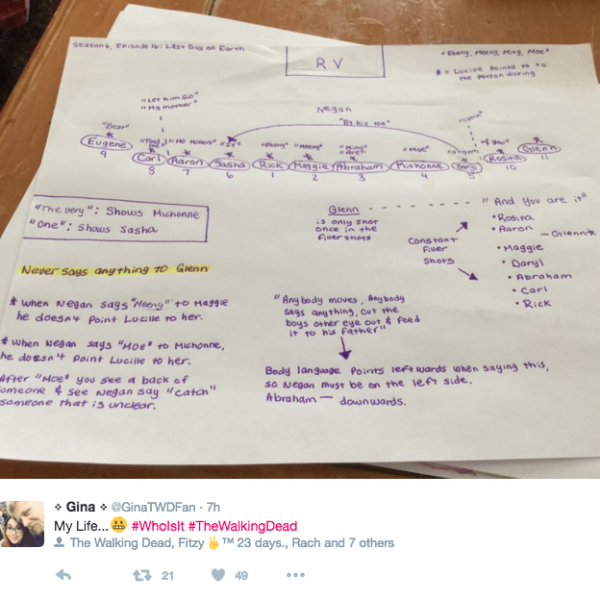 Season 6, Episode 16: Last Day on Earth
RV
"Eeny, Meeny, Miny, Moe"
* = Lucille Pointed to to
the person during
"Let him Go"
"My mother"
Negan
"By his toe"
"Catch"
"Best"
"Told
me"
"He Hollers"
"If"
"Eeny"
"Meeny"
"Miny"
"Moe"
"a tiger"
"& You"
Eugene
Carl
Aaron
Sasha
Rick
Maggie
Abraham
Michonne
Daryl
Rosita
Glenn
9
8
7
6
1
2
3
4
5
10
11
"The very": Shows Michonne
"One": Shows Sasha
Glenn
is only shot
once in the
filler shots
"And you are it"
• Rosita
• Aaron — Glenn*
• Maggie
• Daryl
• Abraham
• Carl
• Rick
Constant
Filler
Shots
Never says anything to Glenn
* When Negan says "Meeny" to Maggie
he doesn't Point Lucille to her.
* When Negan says "Moe" to Michonne,
he doesn't Point Lucille to her.
After "Moe" you see a back of
someone & see Negan say "catch"
someone that is unclear.
"Anybody moves, Anybody
says anything, cut the
boys other eye out & feed
it to his father"
Body language Points leftwards when saying this,
so Negan must be on the left side.
Abraham — downwards.
Gina @GinaTWDFan · 7h
My Life...😬 #WhoIsIt #TheWalkingDead
The Walking Dead, Fitzy ✌️™ 23 days., Rach and 7 others
21 49